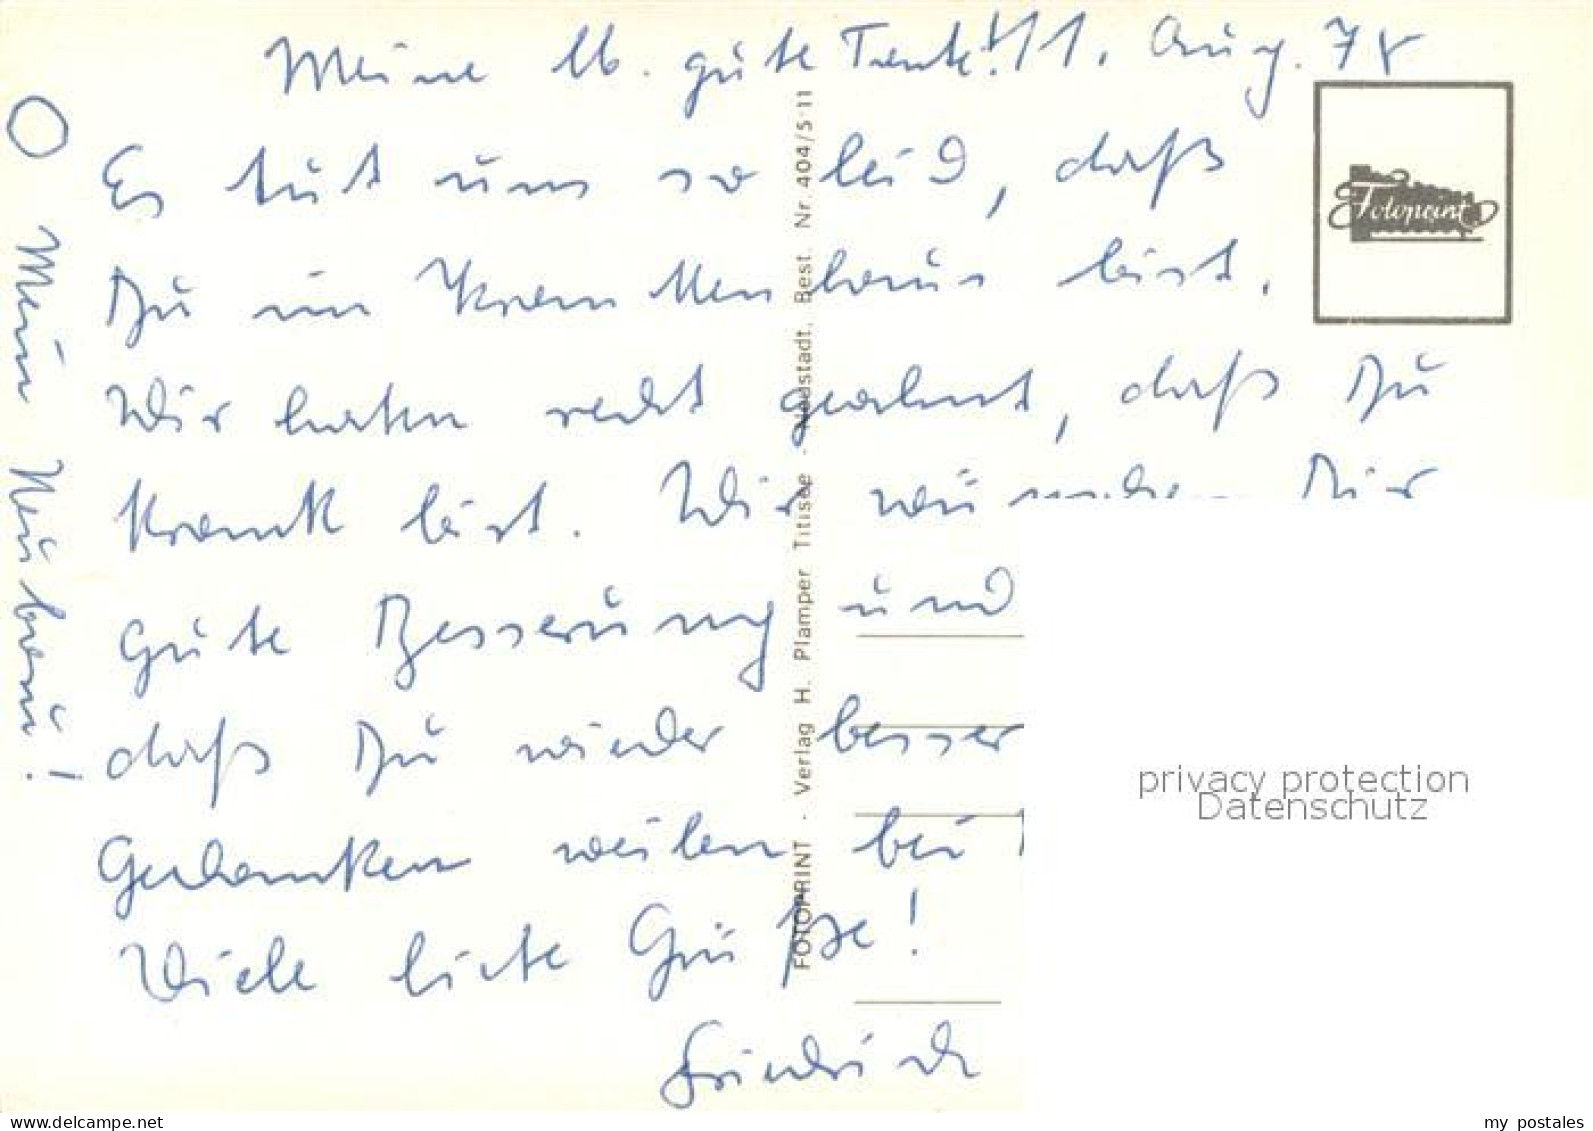 Meine lb. gute Tante! 11. Aug. 78
Es tut uns so leid, daß
Du im Krankenhaus bist.
Wir hatten recht geahnt, daß Du
krank bist. Wir wünschen Dir
gute Besserung und
daß Du wieder besser
Gedanken weilen bei
Viele liebe Grüße!
Friedrich
Mein Neubau!
FOTOPRINT · Verlag H. Plamper Titisee - Neustadt, Best. Nr. 404/S 11
Fotoprint
privacy protection
Datenschutz
www.delcampe.net
my_postales